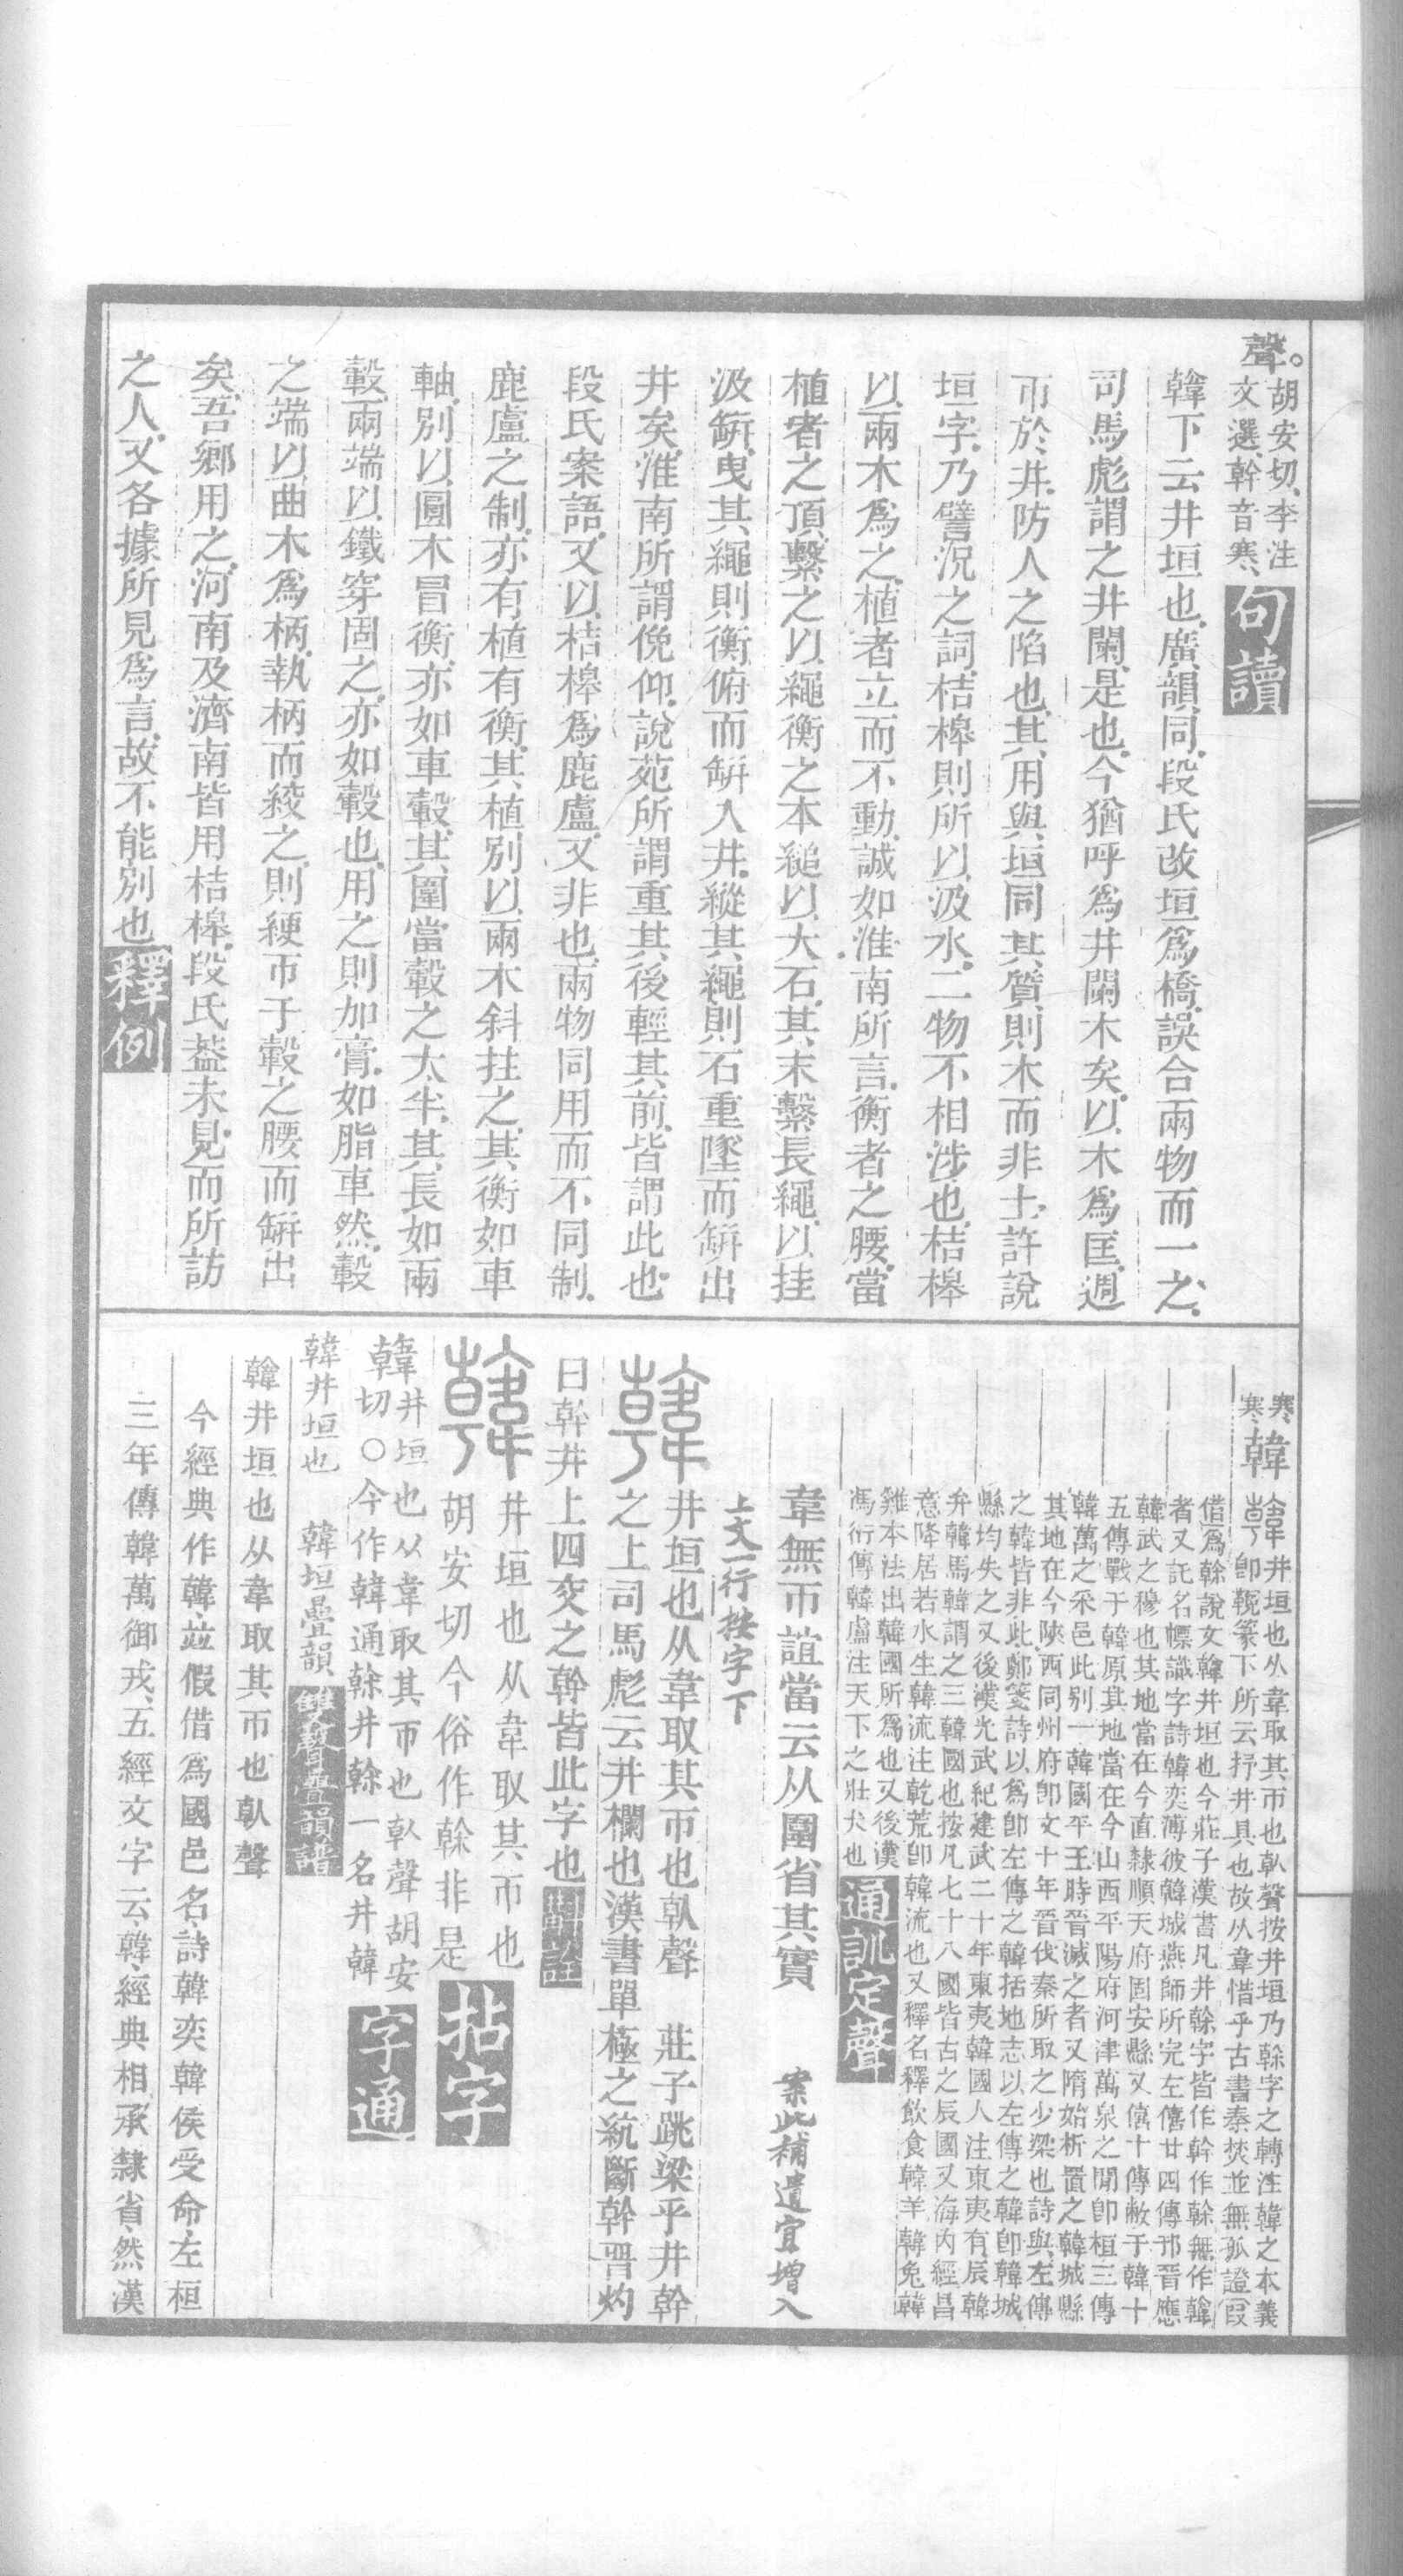 聲。胡安切、李注
文選、幹音寒、句讀
韓下云井垣也、廣韻同、段氏改垣爲橋、誤合兩物而一之、
司馬彪謂之井闌、是也、今猶呼爲井闌木矣、以木爲匡、週
帀於井、防人之陷也、其用與垣同、其質則木而非土、許說
垣字、乃譬況之詞、桔槔則所以汲水、二物不相涉也、桔槔
以兩木爲之、植者立而不動、誠如淮南所言、衡者之腰、當
植者之頂、繫之以繩、衡之本縋以大石、其末繫長繩、以挂
汲缾、曳其繩則衡俯而缾入井、縱其繩、則石重墜而缾出
井矣、淮南所謂俛仰、說苑所謂重其後輕其前、皆謂此也、
段氏案語、又以桔槔爲鹿盧、又非也、兩物同用而不同制、
鹿盧之制、亦有植有衡、其植別以兩木斜拄之、其衡如車
軸、別以圓木冒衡、亦如車轂、其圍當轂之大半、其長如兩
轂、兩端以鐵穿固之、亦如轂也、用之則加膏、如脂車然、轂
之端以曲木爲柄、執柄而綾之、則綆帀于轂之腰而缾出
矣、吾鄉用之、河南及濟南皆用桔槔、段氏葢未見、而所訪
之人、又各據所見爲言、故不能別也、釋例
寒寒韓
韓井垣也从韋取其帀也倝聲按井垣乃榦字之轉注韓之本義
卽䩩篆下所云抒井具也故从韋惜乎古書秦焚並無孤證〔叚
借〕爲榦說文韓井垣也今莊子漢書凡井榦字皆作幹作榦無作韓
者又託名幖識字詩韓奕溥彼韓城燕師所完左僖廿四傳邘晉應
韓武之穆也其地當在今直隸順天府固安縣又僖十傳敝于韓十
五傳戰于韓原其地當在今山西平陽府河津萬泉之閒卽桓三傳
韓萬之采邑此別一韓國平王時晉滅之者又隋始析置之韓城縣
其地在今陝西同州府卽文十年晉伐秦所取之少梁也詩與左傳
之韓皆非此鄭箋詩以爲卽左傳之韓括地志以左傳之韓卽韓城
縣均失之又後漢光武紀建武二十年東夷韓國人注東夷有辰韓
弁韓馬韓謂之三韓國也按凡七十八國皆古之辰國又海內經昌
意降居若水生韓流注乾荒卽韓流也又釋名釋飲食韓羊韓兔韓
雞本法出韓國所爲也又後漢
馮衍傳韓盧注天下之壯犬也通訓定聲
韋無帀誼當云从圍省其實 案此補遺宜增入
上文一行按字下
韓井垣也从韋取其帀也倝聲 莊子跳梁乎井幹
之上司馬彪云井欄也漢書單極之統斷幹晋灼
曰幹井上四交之幹皆此字也斠詮
韓井垣也从韋取其帀也
胡安切今俗作榦非是拈字
韓井垣也从韋取其帀也倝聲胡安
切〇今作韓通榦井榦一名井韓字通
韓井垣也 韓垣疊韻雙聲疊韻譜
韓井垣也从韋取其帀也倝聲
今經典作韓、竝假借爲國邑名、詩韓奕韓侯受命、左桓
三年傳韓萬御戎、五經文字云、韓、經典相承隸省、然漢